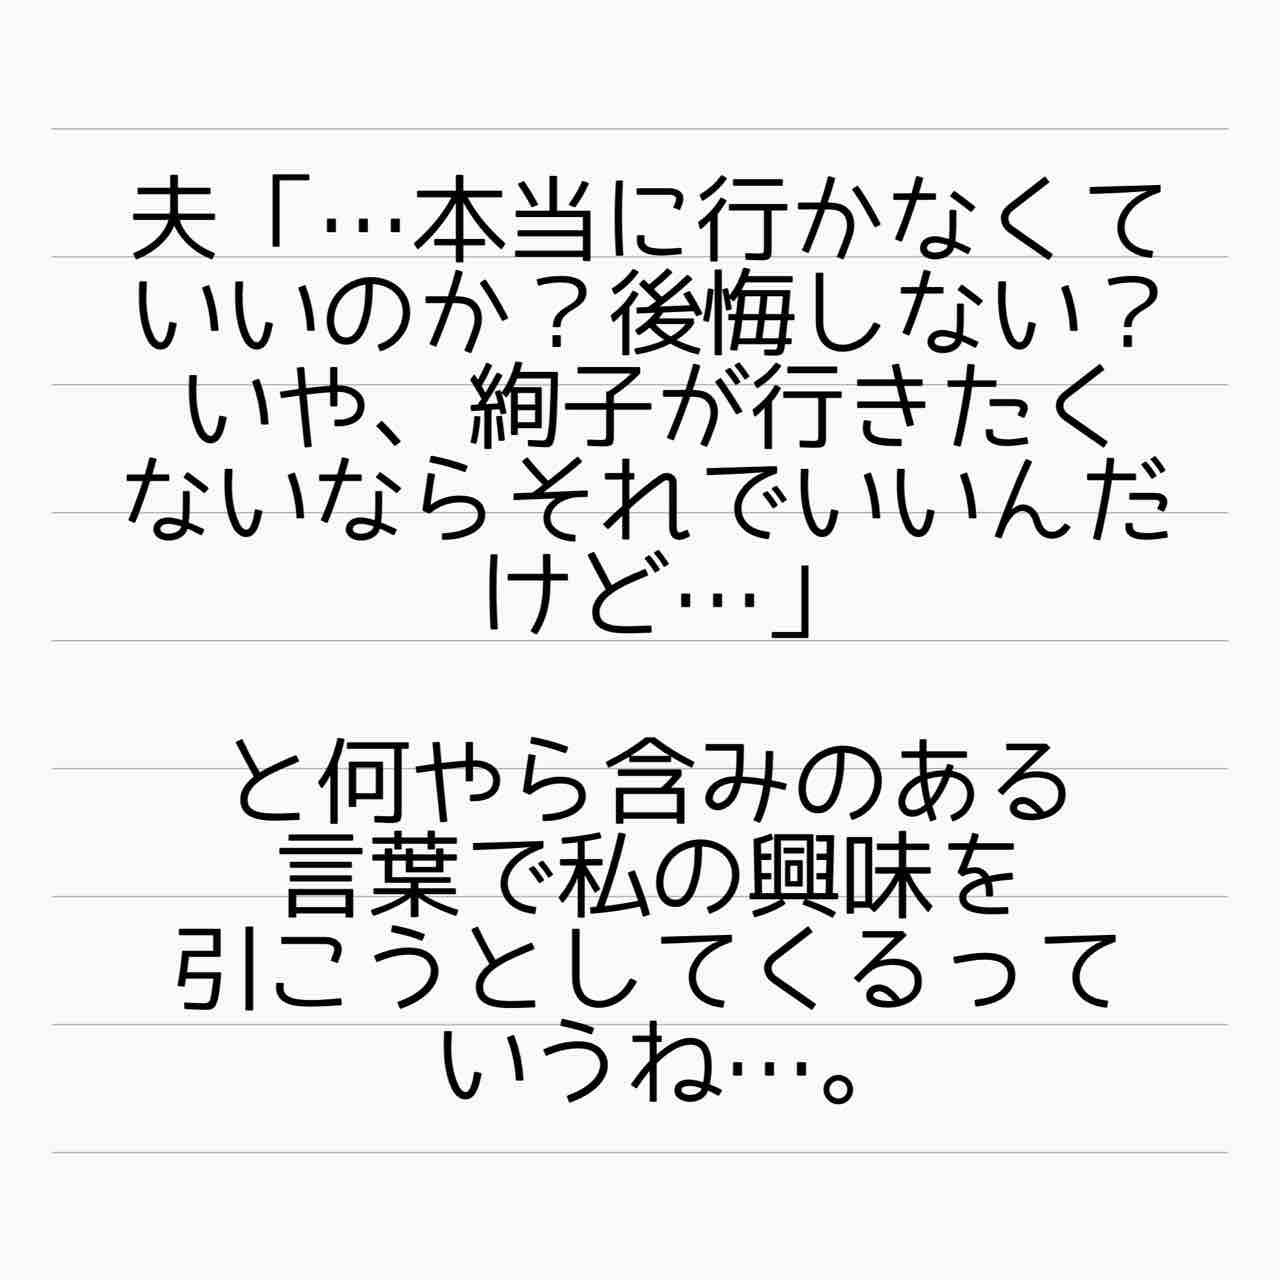 夫「…本当に行かなくて
いいのか？後悔しない？
いや、絢子が行きたく
ないならそれでいいんだ
けど…」
と何やら含みのある
言葉で私の興味を
引こうとしてくるって
いうね…。